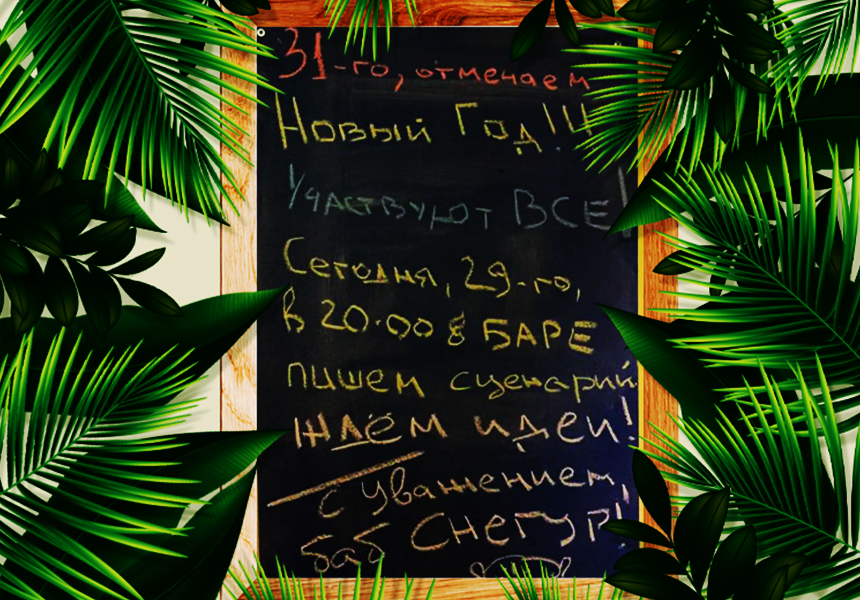 31-го, отмечаем
Новый Год!!!
Участвуют ВСЕ!
Сегодня, 29-го,
в 20.00 в БАРЕ
пишем сценарий
ЖДЁМ идеи!
с уважением,
баб СНЕГУР!